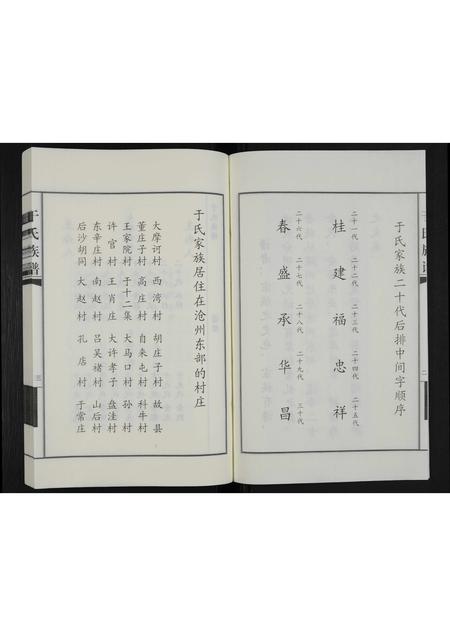 于氏家族二十代后排中间字顺序
二十一代 二十二代 二十三代 二十四代 二十五代
桂 建 福 忠 祥
二十六代 二十七代 二十八代 二十九代 三十代
春 盛 承 华 昌
二
于氏家族居住在沧州东部的村庄
大摩河村 西湾村 胡庄子村 故县
董庄子村 高庄村 自来屯村 科牛村
王家院村 于十二集 大马口村 孙村
许官村 王肖庄 大许孝子 盘洼村
东辛庄村 南赵村 吕吴褚村 山后村
后沙胡同 大赵村 孔店村 于常庄
于氏族谱
三